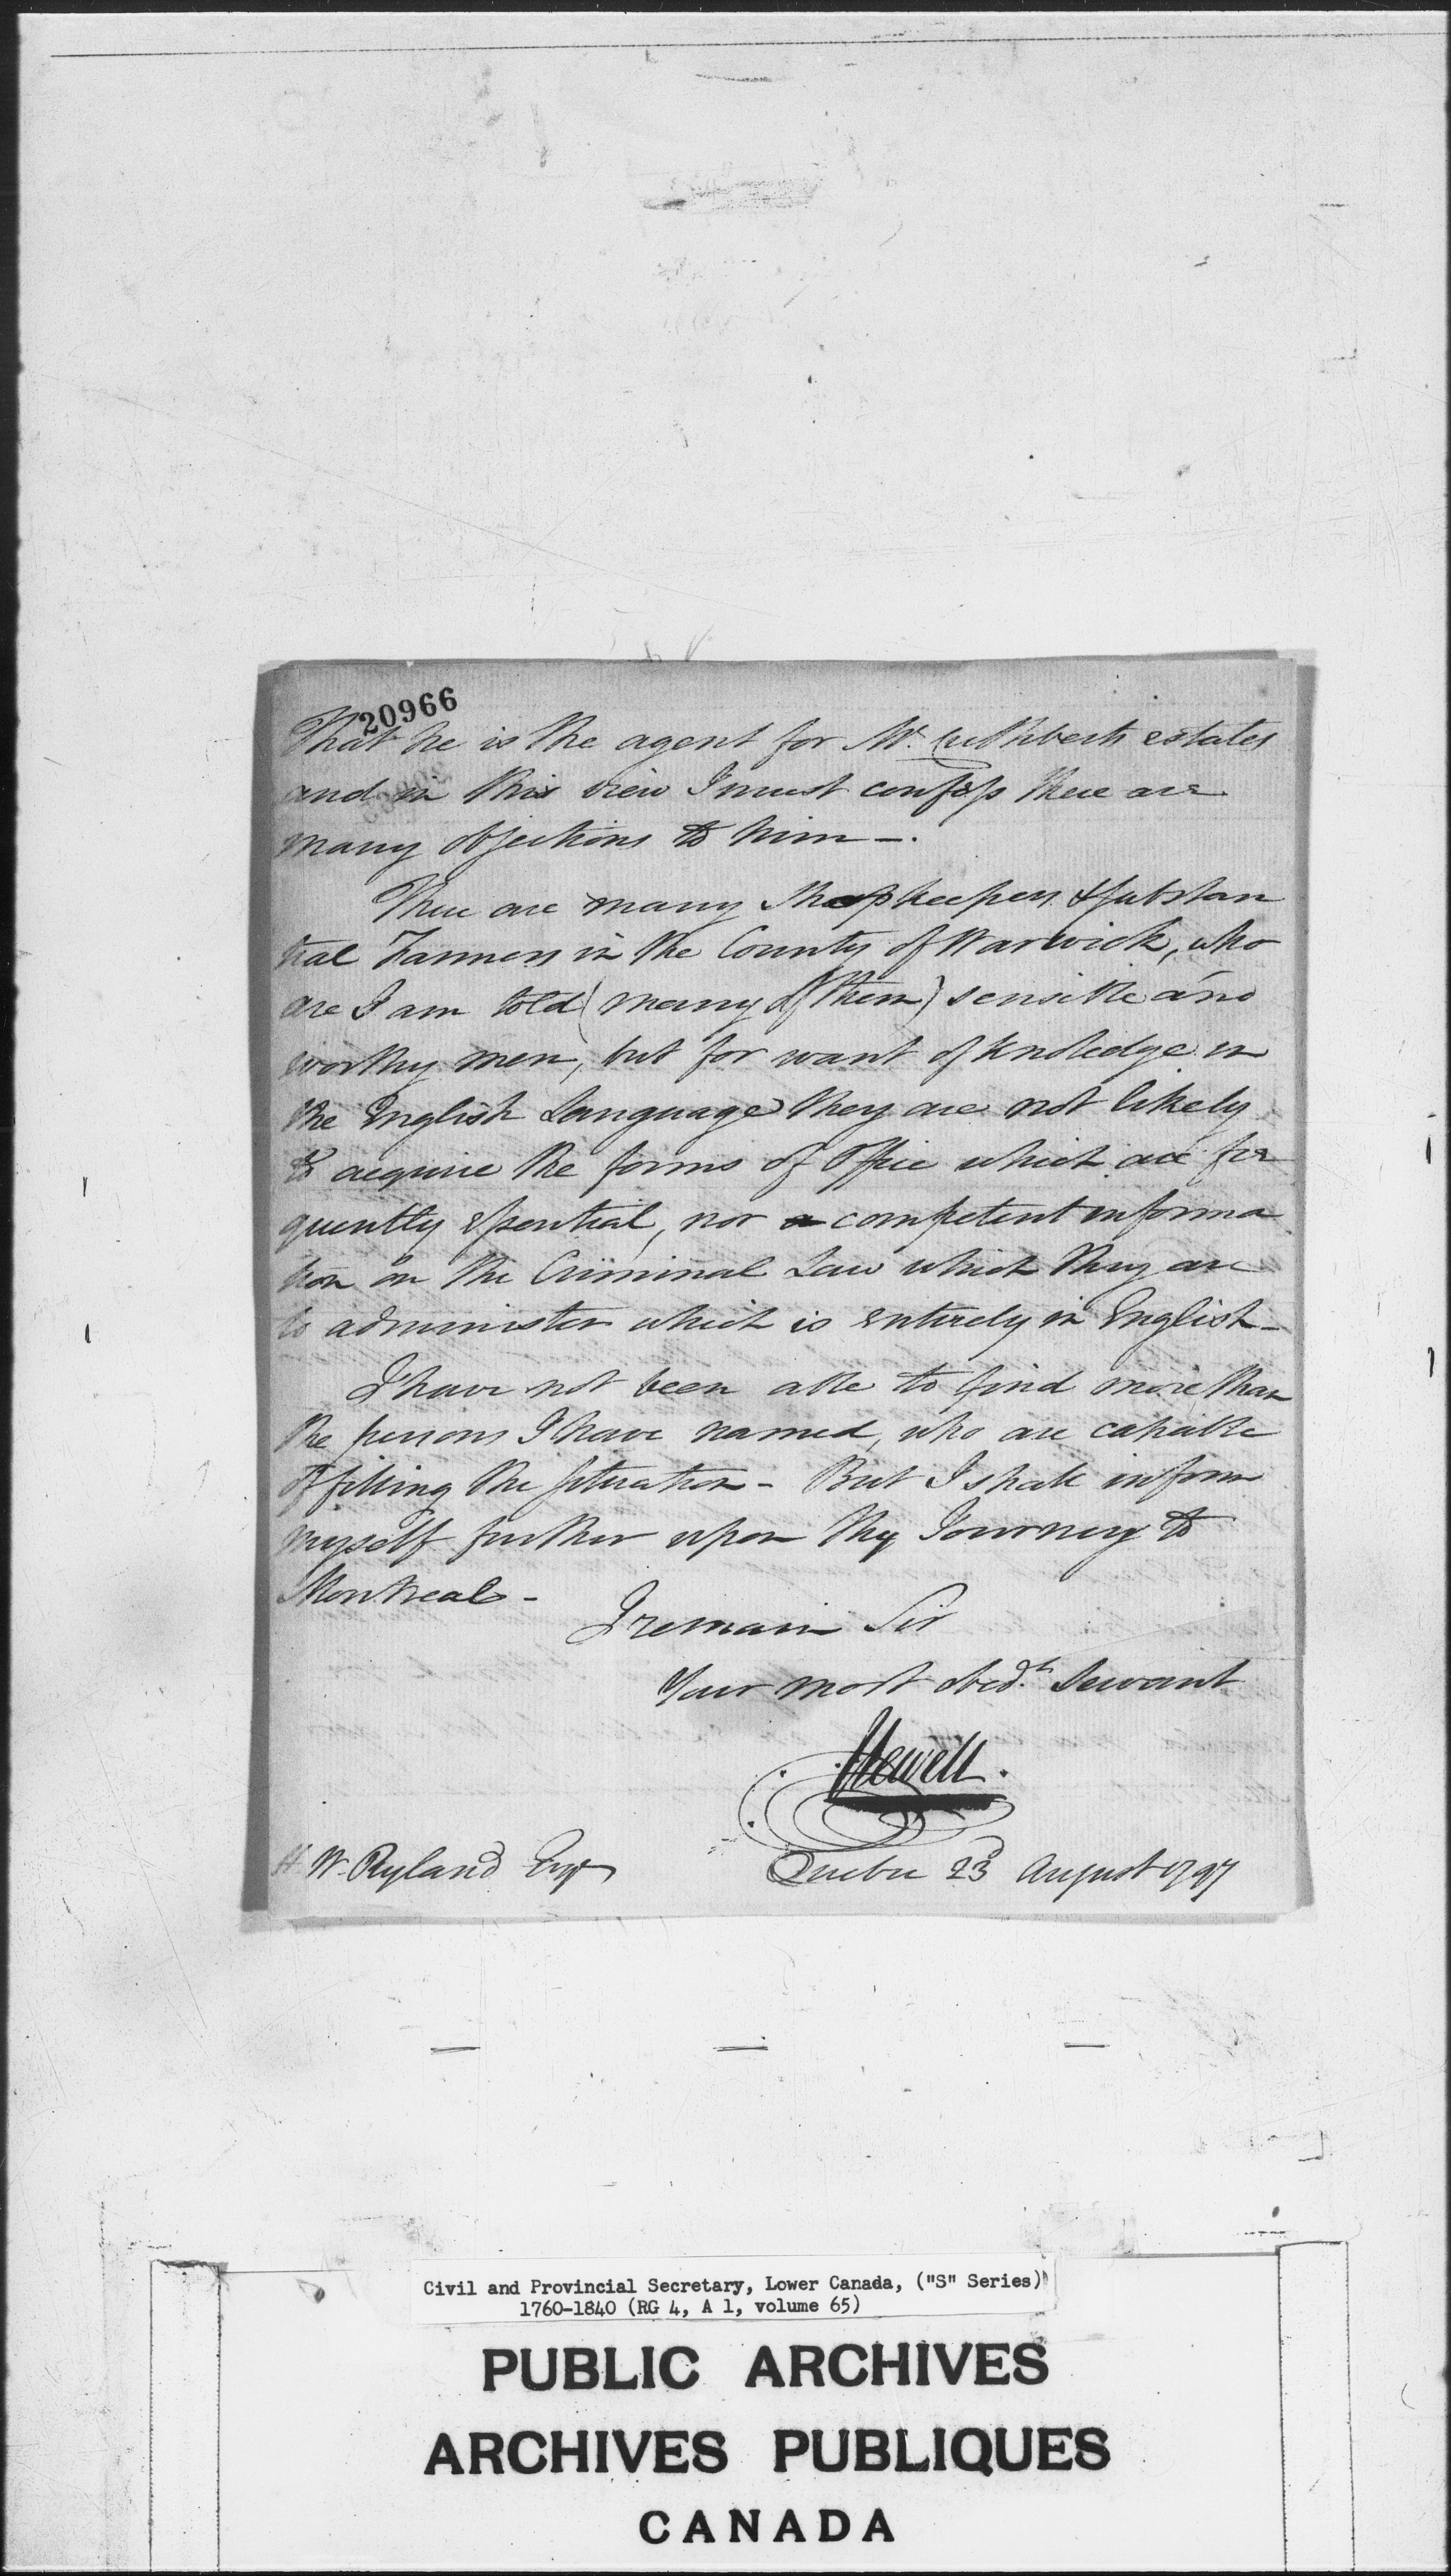 20966
That he is the agent for Mr. Cuthberts estates
and in this view I must confess there are
many objections to him -.
There are many Shopkeepers & Substan
tial Farmers in the County of Warwick, who
are I am told (many of them) sensible and
worthy men, but for want of knoledge in
the English Language they are not likely
to acquire the forms of Office which are fre
quently essential, nor competent informa
tion on the Criminal Law which they are
to administer which is entirely in English -
I have not been able to find more than
the persons I have named, who are capable
of filling the situation - But I shall inform
myself further upon my Journey to
Montreal -
I remain Sir
Your most obedt. Servant
JSewell.
H. W. Ryland Esqr
Quebec 23d August 1797
Civil and Provincial Secretary, Lower Canada, ("S" Series)
1760-1840 (RG 4, A 1, volume 65)
PUBLIC ARCHIVES
ARCHIVES PUBLIQUES
CANADA